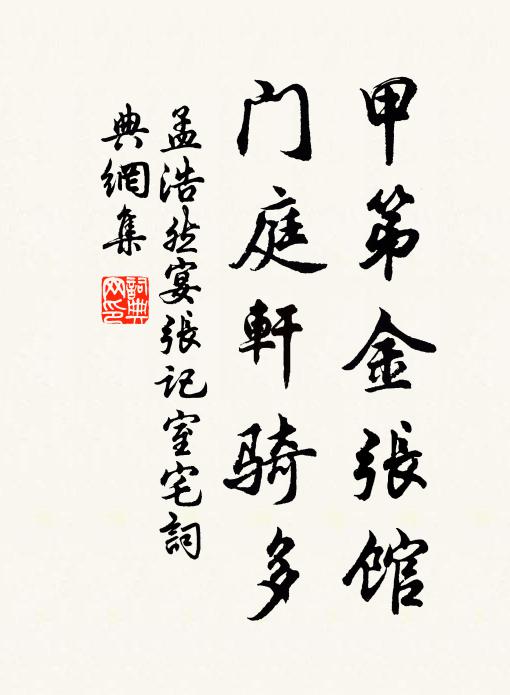 甲第金張馆
门庭軒骑多
孟浩然宴張记室宅詞
典網集
詞典网印